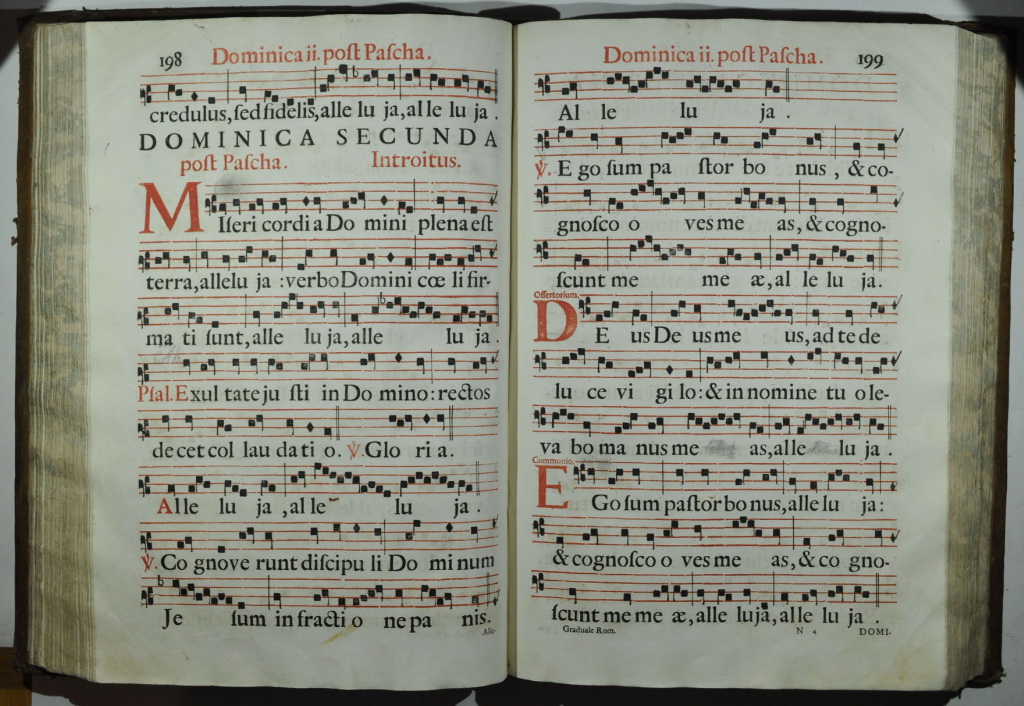 198 Dominica ii. poſt Paſcha.
credulus, ſed fidelis, alle lu ja, al le lu ja .
DOMINICA SECUNDA
poſt Paſcha. Introitus.
MIſeri cordi a Do mini plena eſt
terra, allelu ja : verbo Domini cœ li fir-
ma ti ſunt, alle lu ja, alle lu ja .
Pſal. Exul tate ju ſti in Do mino: rectos
decet col lau da ti o. ℣. Glo ri a.
Alle lu ja , al le lu ja .
℣. Co gnove runt diſcipu li Do mi num
Je ſum in fracti o ne pa nis.
Alle-
Dominica ii. poſt Paſcha. 199
Al le lu ja .
℣. E go ſum pa ſtor bo nus , & co-
gnoſco o ves me as, & cogno-
ſcunt me me æ, al le lu ja.
Offertorium.
DE us De us me us, ad te de
lu ce vi gi lo: & in nomine tu o le-
va bo ma nus me as, alle lu ja .
Communio.
EGo ſum paſtor bo nus, alle lu ja:
& cognoſco o ves me as, & co gno-
ſcunt me me æ, alle luja, alle lu ja .
Graduale Rom. N 4 DOMI-